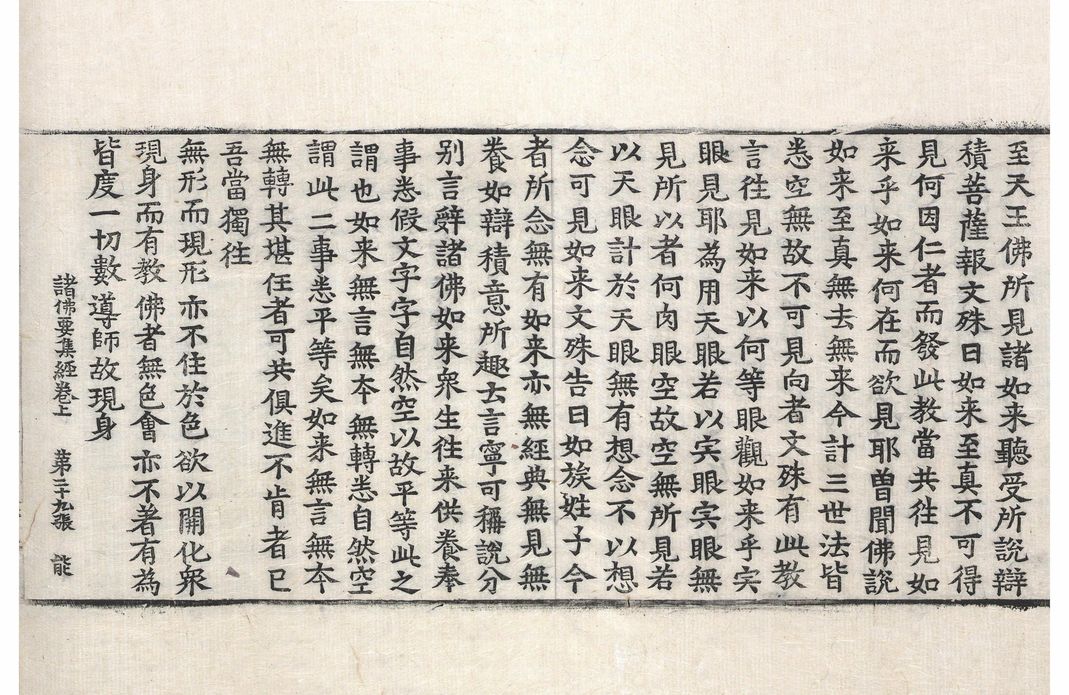 至天王佛所見諸如来聽受所說辯
積菩薩報文殊曰如来至真不可得
見何因仁者而發此教當共往見如
来乎如来何在而欲見耶曽聞佛說
如来至真無去無来今計三世法皆
悉空無故不可見向者文殊有此教
言往見如来以何等眼觀如来乎宍
眼見耶為用天眼若以宍眼宍眼無
見所以者何肉眼空故空無所見若
以天眼計於天眼無有想念不以想
念可見如来文殊告曰如族姓子今
者所念無有如来亦無經典無見無
養如辯積意所趣去言寧可稱說分
别言辤諸佛如来衆生往来供養奉
事悉假文字字自然空以故平等此之
謂也如来無言無本無轉悉自然空
謂此二事悉平等矣如来無言無本
無轉其堪任者可共俱進不肯者已
吾當獨往
無形而現形亦不住於色欲以開化衆
現身而有教佛者無色會亦不著有為
皆度一切數導師故現身
諸佛要集經卷上 第二十九張 能